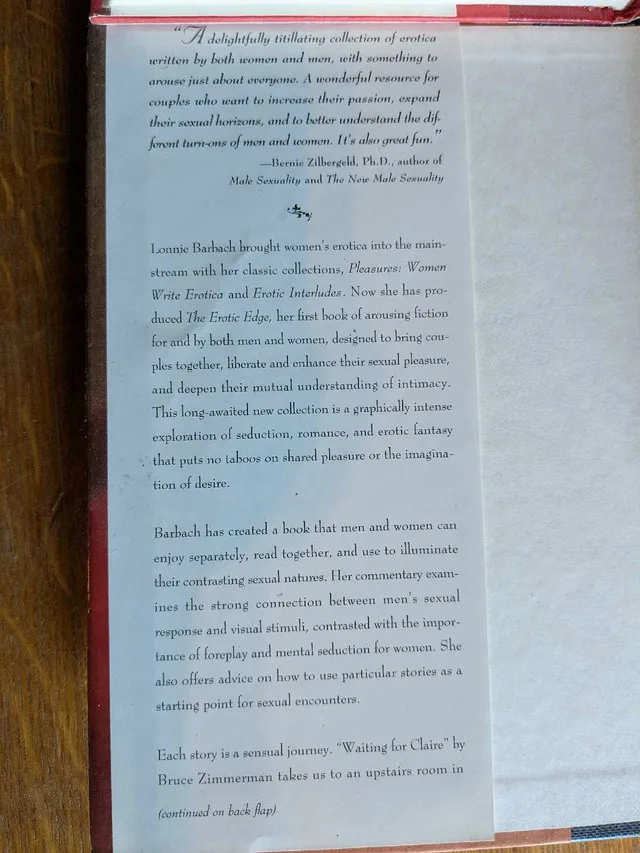 “A delightfully titillating collection of erotica
written by both women and men, with something to
arouse just about everyone. A wonderful resource for
couples who want to increase their passion, expand
their sexual horizons, and to better understand the dif-
ferent turn-ons of men and women. It's also great fun.”
—Bernie Zilbergeld, Ph.D., author of
Male Sexuality and The New Male Sexuality
Lonnie Barbach brought women's erotica into the main-
stream with her classic collections, Pleasures: Women
Write Erotica and Erotic Interludes. Now she has pro-
duced The Erotic Edge, her first book of arousing fiction
for and by both men and women, designed to bring cou-
ples together, liberate and enhance their sexual pleasure,
and deepen their mutual understanding of intimacy.
This long-awaited new collection is a graphically intense
exploration of seduction, romance, and erotic fantasy
that puts no taboos on shared pleasure or the imagina-
tion of desire.
Barbach has created a book that men and women can
enjoy separately, read together, and use to illuminate
their contrasting sexual natures. Her commentary exam-
ines the strong connection between men's sexual
response and visual stimuli, contrasted with the impor-
tance of foreplay and mental seduction for women. She
also offers advice on how to use particular stories as a
starting point for sexual encounters.
Each story is a sensual journey. “Waiting for Claire” by
Bruce Zimmerman takes us to an upstairs room in
(continued on back flap)